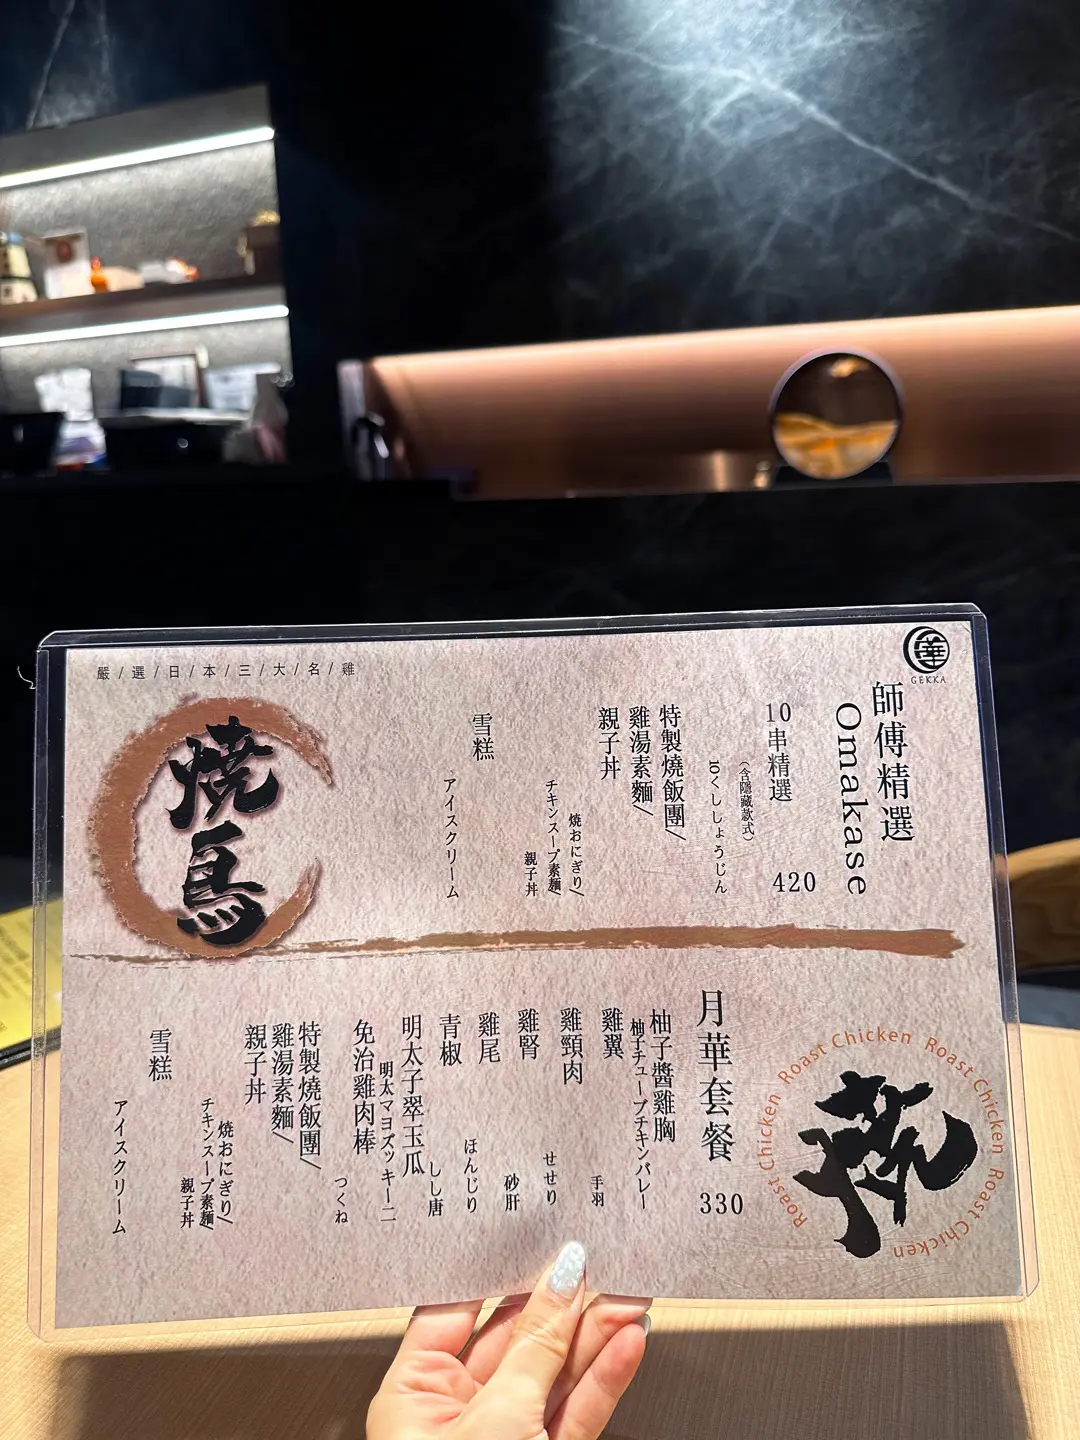 嚴/選/日/本/三/大/名/雞
燒
鳥
華
GEKKA
師傅精選
Omakase
10串精選
420
(含隱藏款式)
10くししょうじん
特製燒飯團/
雞湯素麵/
親子丼
焼おにぎり/
チキンスープ素麺/
親子丼
雪糕
アイスクリーム
Roast Chicken Roast Chicken Roast Chicken Roast Chicken
月華套餐
330
柚子醬雞胸
柚子チューブチキンバレー
雞翼
手羽
雞頸肉
せせり
雞腎
砂肝
雞尾
ほんじり
青椒
しし唐
明太子翠玉瓜
明太マヨズッキーニ
免治雞肉棒
つくね
特製燒飯團/
雞湯素麵/
親子丼
焼おにぎり/
チキンスープ素麺/
親子丼
雪糕
アイスクリーム